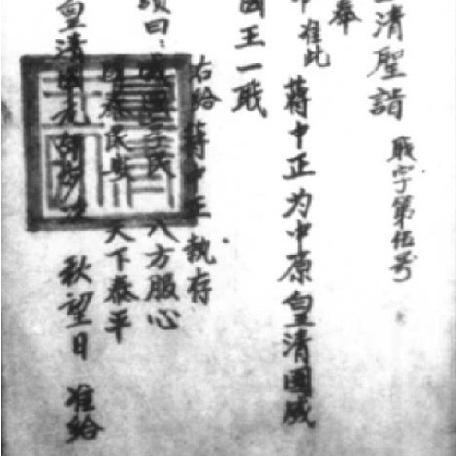 皇清聖誥 職字第伍号
奉
准此 蔣中正为中原皇清國威
國王一職
右給蔣中正執存
頌曰：子民 八方服心
國泰民安 天下泰平
皇清國元 秋望日 准給